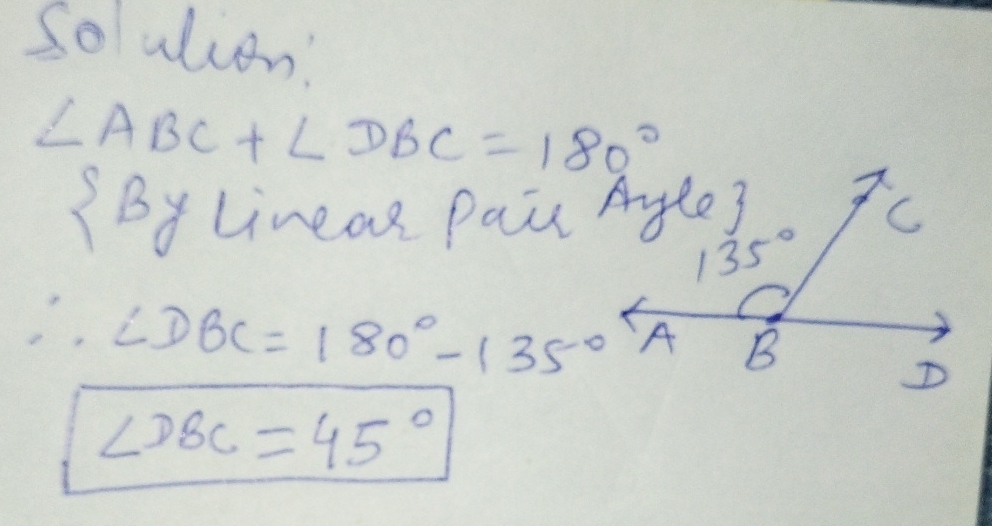 Solution:
∠ABC + ∠DBC = 180°
{By Linear Pair Angle}
∴ ∠DBC = 180° - 135°
∠DBC = 45°
135°
C
A
B
D